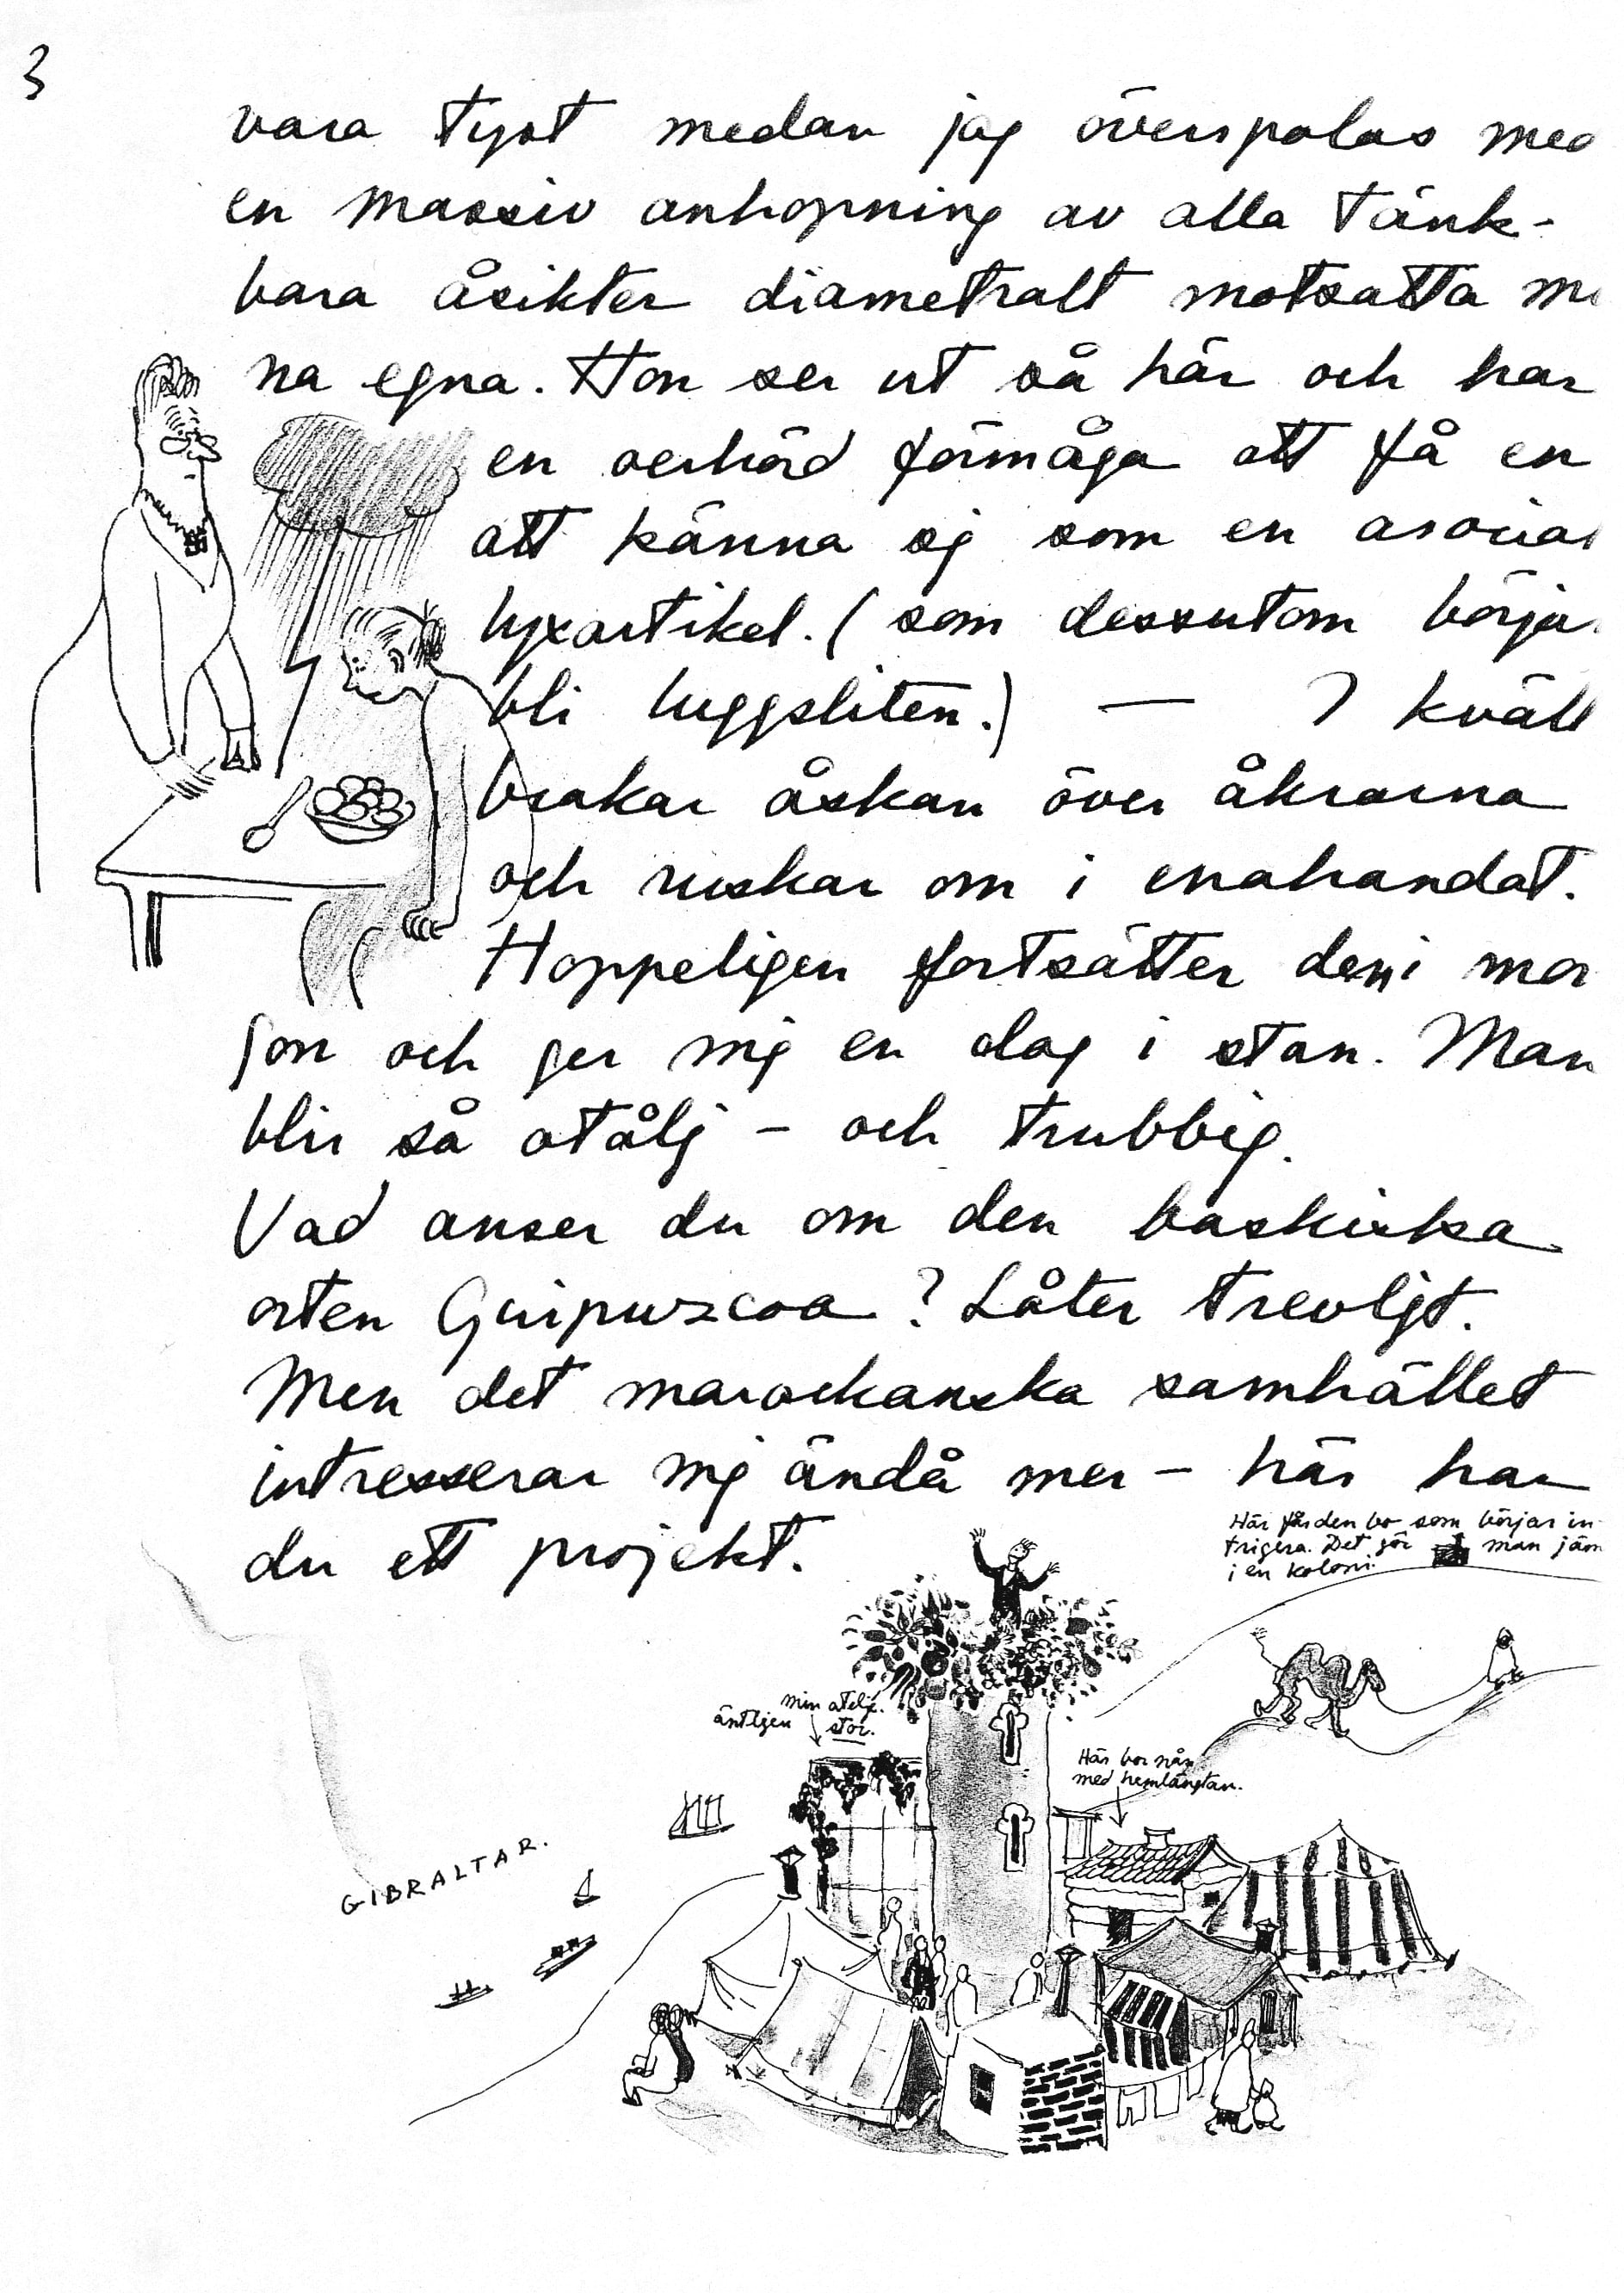 3
vara tyst medan jag överspolas med
en massiv anhopning av alla tänk-
bara åsikter diametralt motsatta mi
na egna. Hon ser ut så här och har
en oerhörd förmåga att få en
att känna sig som en asocial
lyxartikel. (som dessutom börjar
bli luggsliten.) — I kväll
brakar åskan över åkrarna
och ruskar om i enahandat.
Hoppeligen fortsätter den i mor
gon och ger mig en dag i stan. Man
blir så otålig – och trubbig.
Vad anser du om den baskiska
orten Guipuzcoa? Låter trevligt.
Men det marockanska samhället
intresserar mig ändå mer – här har
du ett projekt.
Här får den bo som börjar in-
trigera. Det gör man jäm
i en koloni.
min ateljé.
äntligen stor.
Här bor nån
med hemlängtan.
GIBRALTAR.